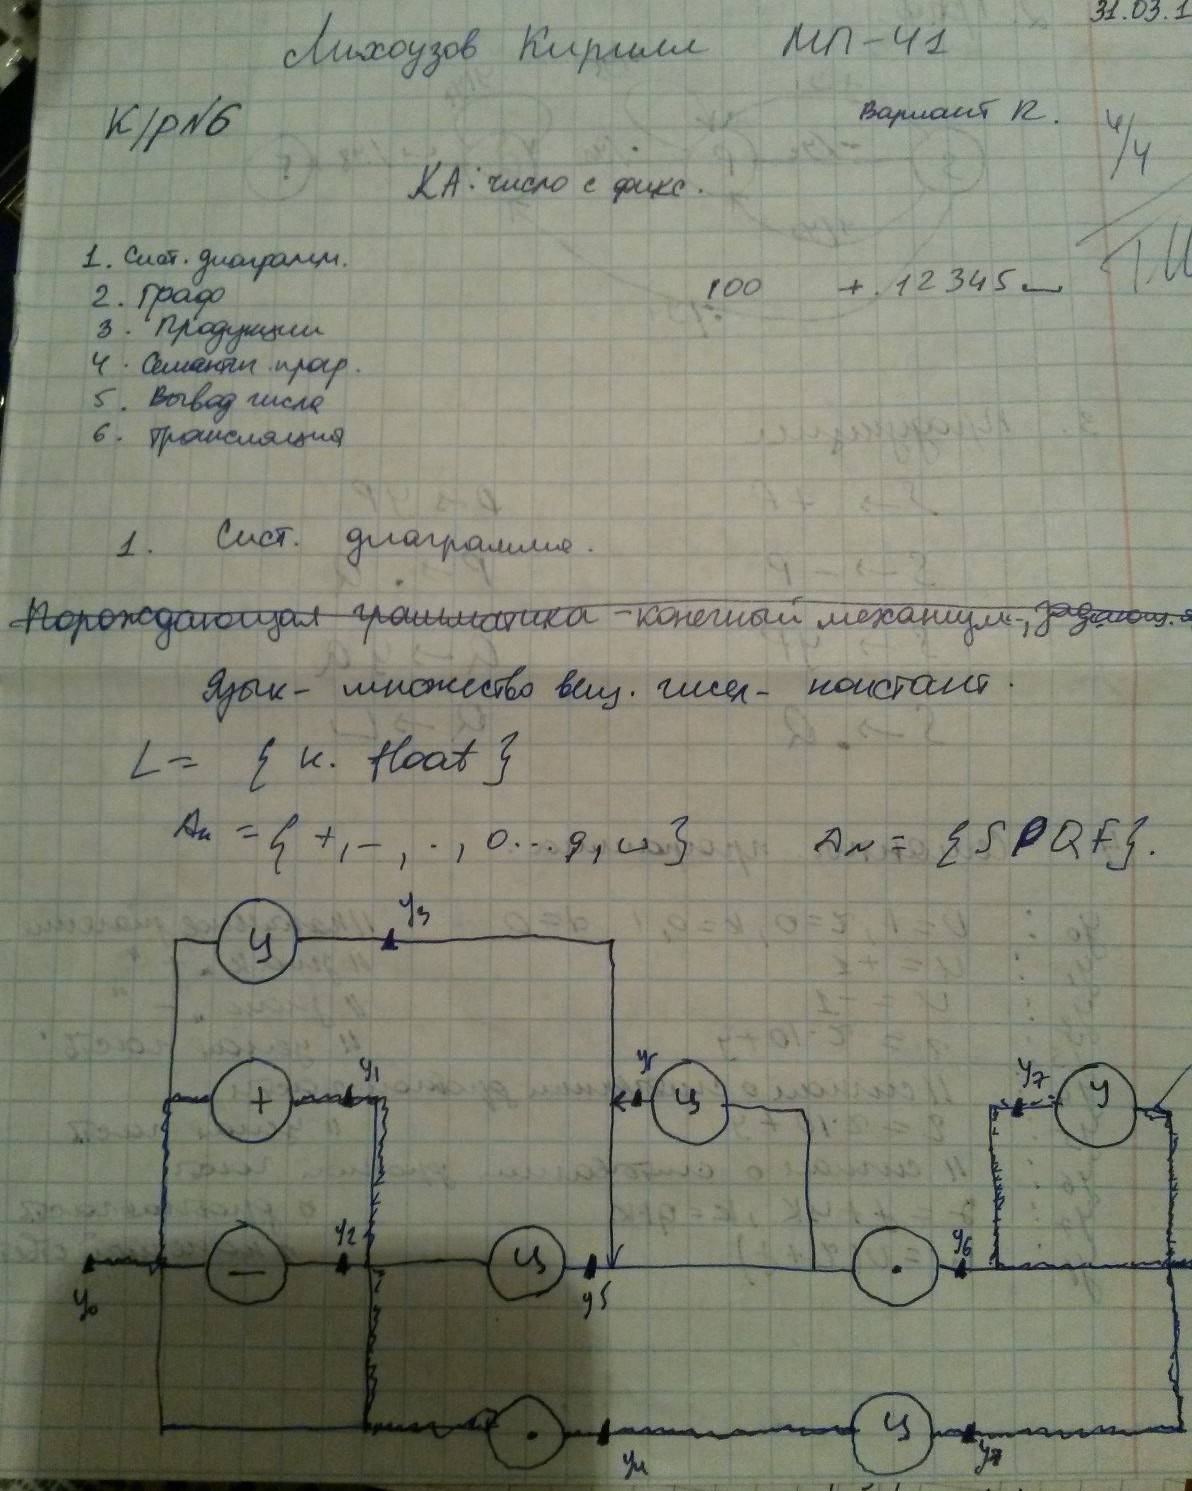 31.03.1
Лихоузов Кирилл МП-41
К/р№6
Вариант R.
4/4
КА: число с фикс.
1. Сист. диаграмм.
2. Граф
100 +.12345
3. Продукции
4. Семантич. прогр.
5. Вывод числа
6. Трансляция
1. Синт. диаграмма.
Порождающая грамматика - конечный механизм,
Язык - множество вещ. чисел - констант.
L = { к. float }
= { +, -, ., 0...9, ⊔ } = { S P Q F }.
Ц y3
+ y1 y5 Ц y7 Ц
y0 - y2 Ц y5 . y6
. y4 Ц y7